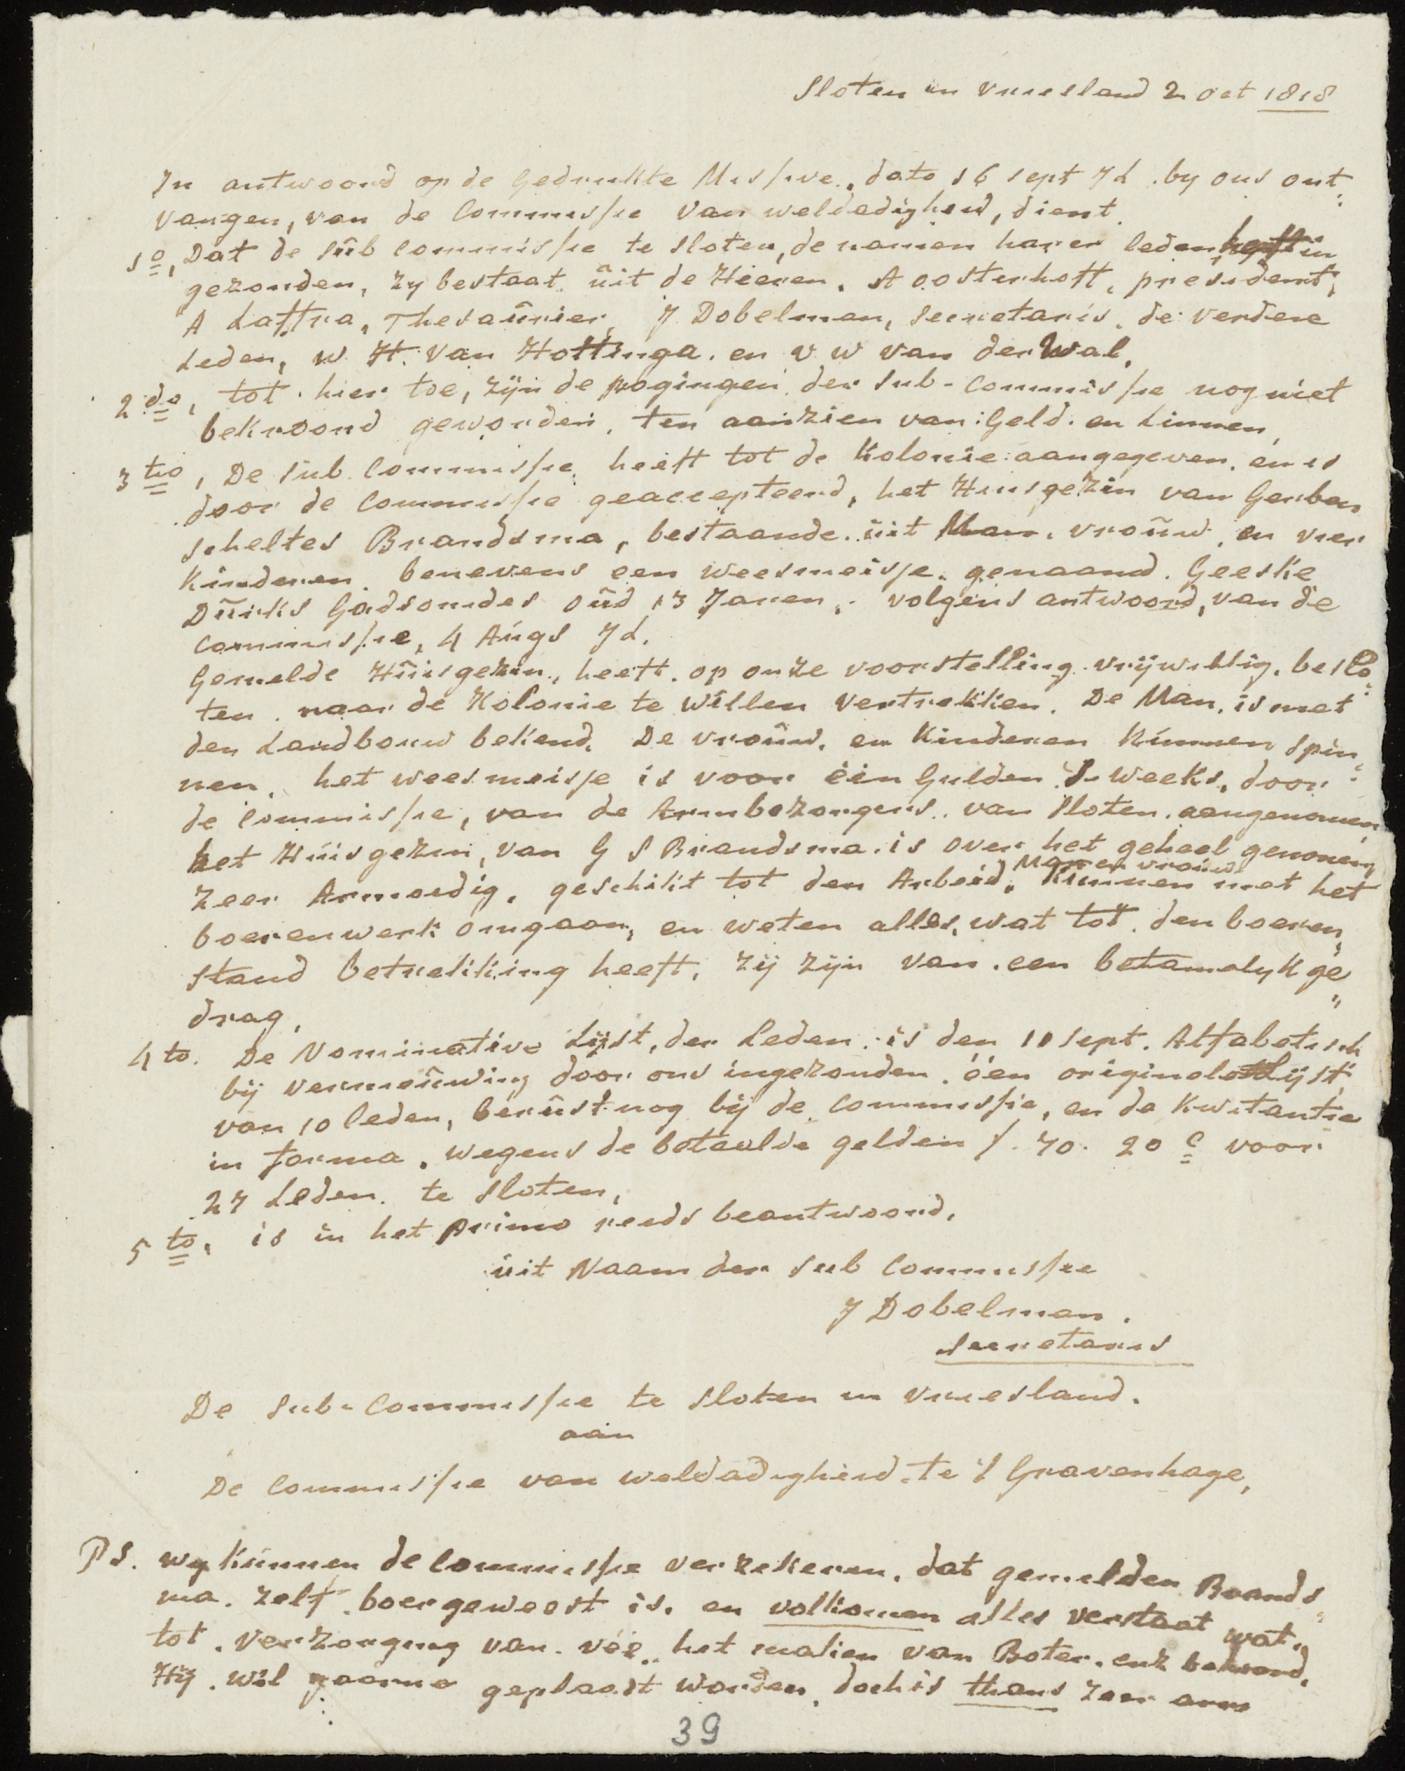 Sloten in Vriesland 2 oct 1818
In antwoord op de Gedrukte Missive, dato 16 sept Jl. by ons ont
vangen, van de Commissie van weldadigheid, dient
1o, Dat de sub commissie te sloten, de namen harer leden heeft in
gezonden, zy bestaat uit de Heeren. A oosterhoff, president,
A Laffra, Thesaurier, J Dobelman, secretaris, de verdere
Leden, W. H. Van Hottinga. en v W van der Wal,
2do, tot hier toe, zijn de pogingen der sub-commissie nog niet
bekroond geworden, ten aanzien van Geld en Linnen,
3tio, De sub Commissie heeft tot de Kolonie aangegeven, en is
door de Commissie geaccepteerd, het Huisgezin van Gerben
scheltes Brandsma, bestaande uit Man, vrouw, en vier
Kinderen benevens een weesmeisje, genaamd Geeske
Durks Gadsondes oud 13 Jaren, volgens antwoord, van de
commissie, 4 Augs Jl.
Gemelde Huisgezin, heeft op onze voorstelling vrijwillig, beslo
ten naar de Kolonie te willen vertrekken. De Man, is met
den Landbouw bekend, De vrouw, en Kinderen kunnen spin
nen, het weesmeisje is voor één Gulden 's weeks, door
de Commissie, van de Armbezorgers van sloten aangenomen
het Huisgezin, van G S Brandsma is over het geheel genomen
Man en vrouw
zeer Armoedig, geschikt tot den Arbeid, kunnen met het
boerenwerk omgaan, en weten alles, wat tot den boeren
stand betrekking heeft, zij zijn van een betamelyk ge
drag,
4to. De Nominative Lijst, der Leden is den 11 sept. Alfabetisch
bij vernieuwing door ons ingezonden, één originele Lijst
van 10 leden, berust nog bij de commissie, en de Kwitantie
in forma, wegens de betaalde gelden f. 70. 20 c voor
27 Leden te sloten,
5to, is in het primo reeds beantwoord,
uit Naam der sub Commissie
J Dobelman.
secretaris
De sub-Commissie te sloten in vriesland.
aan
De Commissie van weldadigheid te 's Gravenhage,
PS. wy kunnen de Commissie verzekeren, dat gemelden Brands
ma zelf boer geweest is, en volkomen alles verstaat wat
tot verzorging van vée, het maken van Boter, enz behoord,
Hij wil gaarne geplaatst worden, doch is thans zeer arm
39